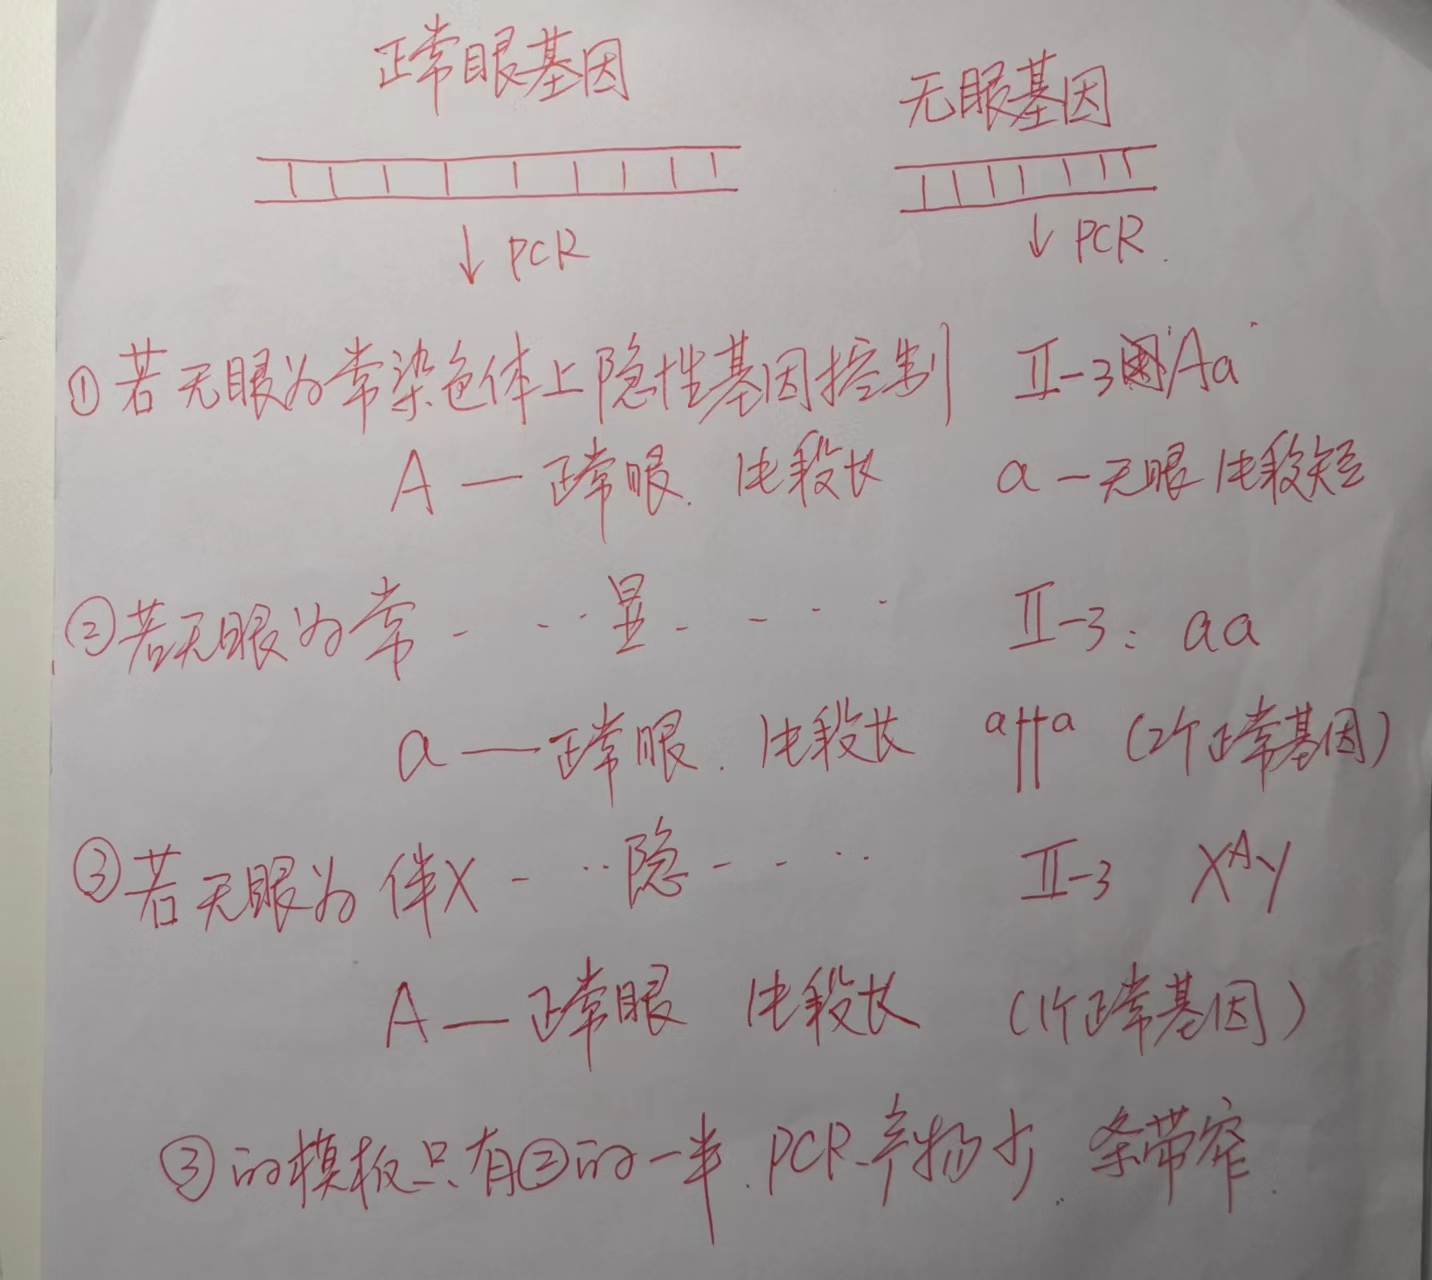 正常眼基因
无眼基因
↓PCR
↓PCR.
①若无眼为常染色体上隐性基因控制 Ⅱ-3 Aa
A — 正常眼. 片段长 a — 无眼 片段短
②若无眼为常 - - ·· 显 - - - - Ⅱ-3: aa
a — 正常眼. 片段长 a a (2个正常基因)
③若无眼为 伴X - ·· 隐 - - ·· Ⅱ-3 XᴬY
A — 正常眼 片段长 (1个正常基因)
③的模板只有②的一半. PCR产物少. 条带窄.